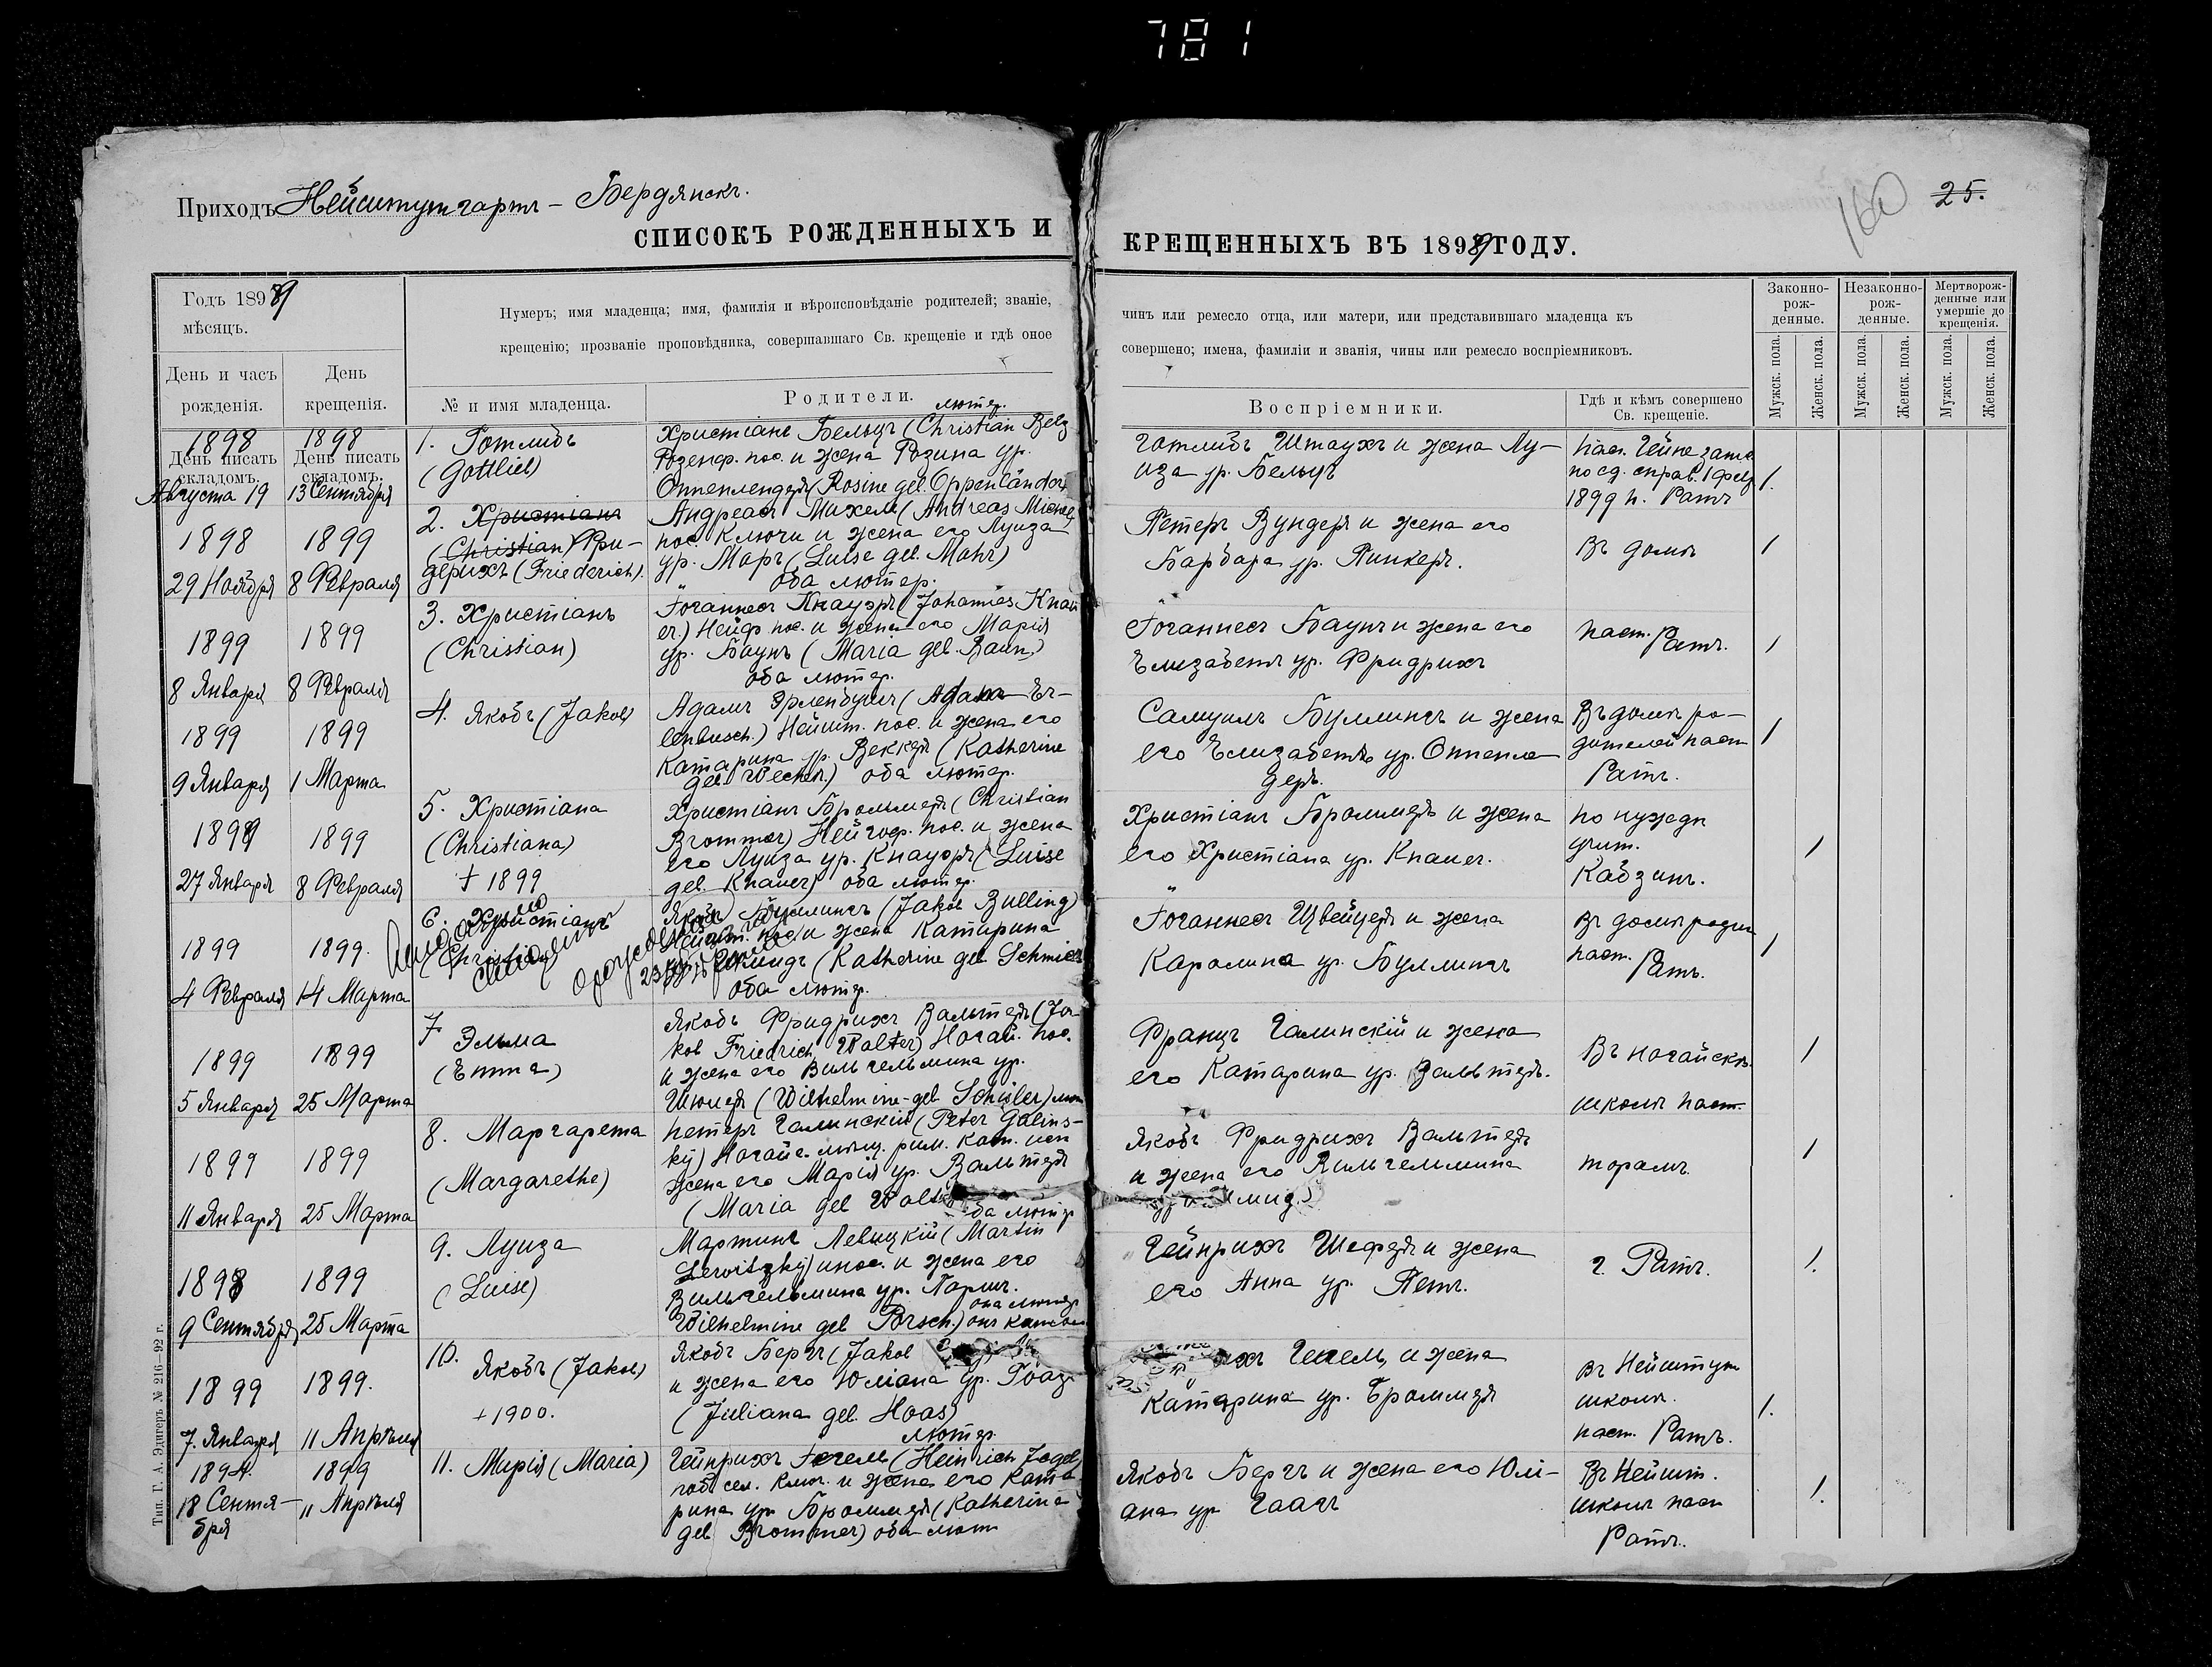 781
Приходъ Нейштутгартъ – Бердянскъ.
160
25.
СПИСОКЪ РОЖДЕННЫХЪ И КРЕЩЕННЫХЪ ВЪ 1899 ГОДУ.
Годъ 1899
мѣсяцъ.
Нумеръ; имя младенца; имя, фамилія и вѣроисповѣданіе родителей; званіе, чинъ или ремесло отца, или матери, или представившаго младенца къ
крещенію; прозваніе проповѣдника, совершавшаго Св. крещеніе и гдѣ оное совершено; имена, фамиліи и званія, чины или ремесло воспріемниковъ.
Законно-
рож-
денные.
Незаконно-
рож-
денные.
Мертворож-
денные или
умершіе до
крещенія.
День и часъ
рожденія.
День
крещенія.
№ и имя младенца.
Родители.
Воспріемники.
Гдѣ и кѣмъ совершено
Св. крещеніе.
Мужск. пола.
Женск. пола.
Мужск. пола.
Женск. пола.
Мужск. пола.
Женск. пола.
День писать
складомъ.
День писать
складомъ.
1898
Августа 19
1898
13 Сентября
1. Готлибъ
(Gottlieb)
лютер.
Христіанъ Бельцъ (Christian Belz
Розенф. пос. и жена Розина ур.
Оппенлендеръ (Rosine geb. Oppenländer)
Готлибъ Штаухъ и жена Лу-
иза ур. Бельцъ
1899 п. Ратъ
1.
1898
29 Ноября
1899
8 Февраля
2. Христіанъ
(Christian) Фри-
дерихъ (Friederich).
Андреасъ Михель (Andreas Michel
пос. Ключи и жена его Луиза
ур. Маръ (Luise geb. Mahr)
оба лютер.
Петеръ Вундеръ и жена его
Барбара ур. Пинкеръ.
Въ домѣ
1
1899
8 Января
1899
8 Февраля
3. Христіанъ
(Christian)
Іоганнесъ Кнауэръ (Johannes Knau
er.) Нейгф. пос. и жена его Марія
ур. Баунъ (Maria geb. Baun.)
оба лютер.
Іоганнесъ Баунъ и жена его
Елизабетъ ур. Фридрихъ
паст. Ратъ.
1
1899
9 Января
1899
1 Марта
4. Якобъ (Jakob)
Адамъ Эрленбушъ (Adam Er-
lenbusch.) Нейшт. пос. и жена его
Катарина ур. Веккеръ (Katherine
оба лютер.
Самуилъ Буллингъ и жена
его Елизабетъ ур. Оппенлен
деръ.
Въ домѣ ро-
дителей паст
Ратъ.
1
1899
27 Января
1899
8 Февраля
5. Христіана
(Christiana)
+ 1899
Христіанъ Броммеръ (Christian
Brommer) Нейгоф. пос. и жена
его Луиза ур. Кнауэръ (Luise
geb. Knauer) оба лютер.
Христіанъ Броммеръ и жена
его Христіана ур. Knauer.
по нуждѣ
учит.
Кабзинъ.
1
1899
4 Февраля
1899.
14 Марта
6. Христіанъ
(Christian
Якобъ Буллингъ (Jakob Bulling)
Нейшт. пос. и жена Катарина
(Katherine geb Schmied
оба лютер.
Іоганнесъ Цвейцеръ и жена
Каролина ур. Буллингъ
Въ домѣ родит
паст. Ратъ.
1
1899
5 Января
1899
25 Марта
7
Эмма
(Emma)
Якобъ Фридрихъ Вальтеръ (Ja-
kob Friedrich Walter) Ногай. пос.
и жена его Вильгельмина ур.
Шюлеръ (Wilhelmine geb Schüler) лют
Францъ Галинскій и жена
его Катарина ур. Вальтеръ.
Въ Ногайскѣ
школѣ паст-
1
1899
11 Января
1899
25 Марта
8. Маргарета
(Margarethe)
Петеръ Галинскій (Peter Galins-
ky) Ногайс. мѣщ. рим. кат. исп
жена его Марія ур. Вальтеръ
(Maria geb Walter
оба лютер
Якобъ Фридрихъ Вальтеръ
и жена его Вильгельмина
торамъ.
1
1898
9 Сентября
1899
25 Марта
9. Луиза
(Luise)
Мартинъ Левицкій (Martin
Lewitzky) инос. и жена его
Вильгельмина ур. Поршъ.
она лютер
Wilhelmine geb Porsch.) онъ католи
Гейнрихъ Шеферъ и жена
его Анна ур. Петъ.
г. Ратъ.
1.
1899
7. Января
1899.
11 Апрѣля
10.
Якобъ (Jakob)
+ 1900.
Якобъ Бергъ (Jakob
и жена его Юліана ур. Гоаз
(Juliana geb. Hoas)
лютер.
ихъ Гегель, и жена
Катарина ур. Броммеръ
въ Нейштут
школѣ.
паст. Ратъ.
1.
1894.
18 Сентя-
бря
1899
11 Апрѣля
11. Марія (Maria)
Гейнрихъ Гегель (Heinrich Jegel
пос. сел. Ключ. и жена его Ката-
рина ур. Броммеръ (Katherina
geb Brommer) оба лют
Якобъ Бергъ и жена его Юлі-
ана ур Гаагъ
Въ Нейшт.
школѣ паст
Ратъ.
1.
Тип. Г. А. Эдигеръ № 216—92 г.